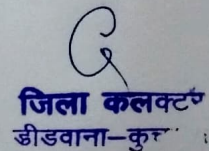 जिला कलक्टर
डीडवाना-कुच